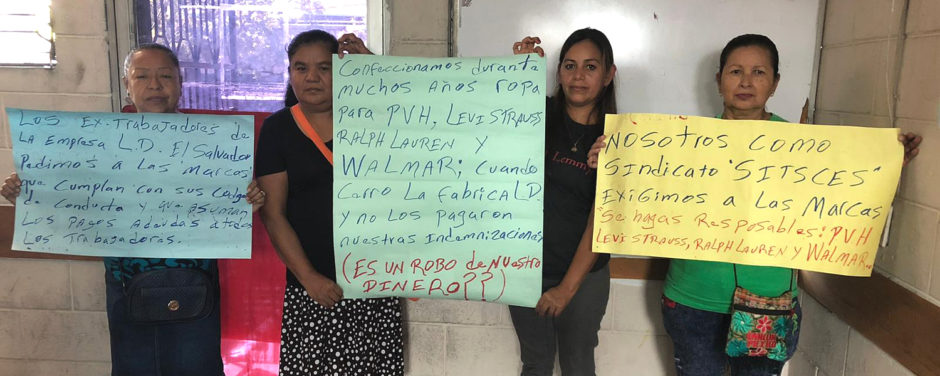 Los Ex-Trabajadores de
LA Empresa L.D. El Salvador
Pedimos a Las Marcas
que cumplan con sus codigos
de conducta y que asuman
Los Pagos Adeudados a todos
Los Trabajadoras.
Confeccionamos durante
muchos años ropa
para PVH, LEVI STRAUSS
RALPH LAUREN Y
WALMAR; cuando
Cerro La fabrica L.D.
y no los pagaron
nuestras Indemnizaciones
(ES UN ROBO de Nuestro
DINERO??)
NOSOTROS COMO
Sindicato "SITSCES"
EXIGIMOS A LAS MARCAS
"Se hagas Responsables! PVH
LEVI STRAUSS, RALPH LAUREN Y WALMAR
Lemmy
CANCUN
MEXICO